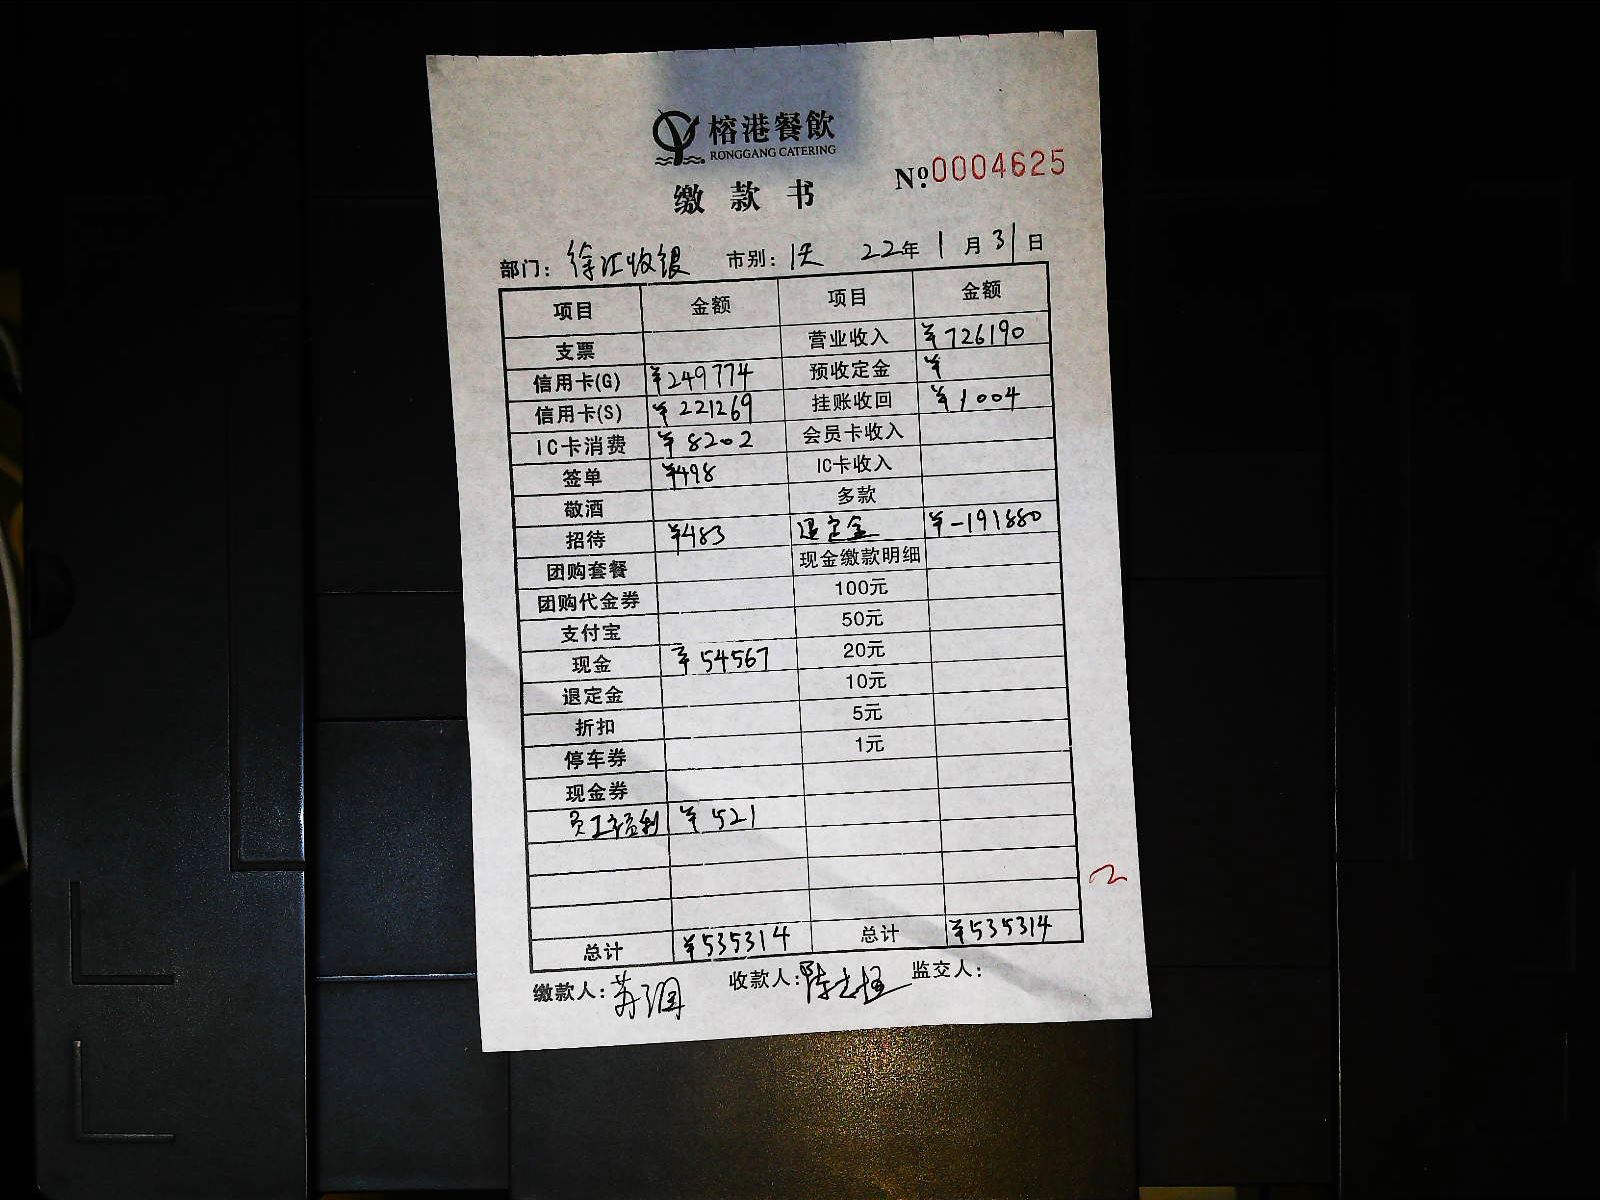 榕港餐飲
RONGGANG CATERING
缴款书
Nº.0004625
部门：徐汇收银 市别：1天 22年1月31日
项目 金额 项目 金额
支票 营业收入 ¥726190
信用卡(G) ¥249774 预收定金 ¥
信用卡(S) ¥221269 挂账收回 ¥1004
IC卡消费 ¥8202 会员卡收入
签单 ¥498 IC卡收入
敬酒 多款
招待 ¥483 退定金 ¥-191880
团购套餐 现金缴款明细
团购代金券 100元
支付宝 50元
现金 ¥54567 20元
退定金 10元
折扣 5元
停车券 1元
现金券
员工福利 ¥521
总计 ¥535314 总计 ¥535314
缴款人： 收款人： 监交人：